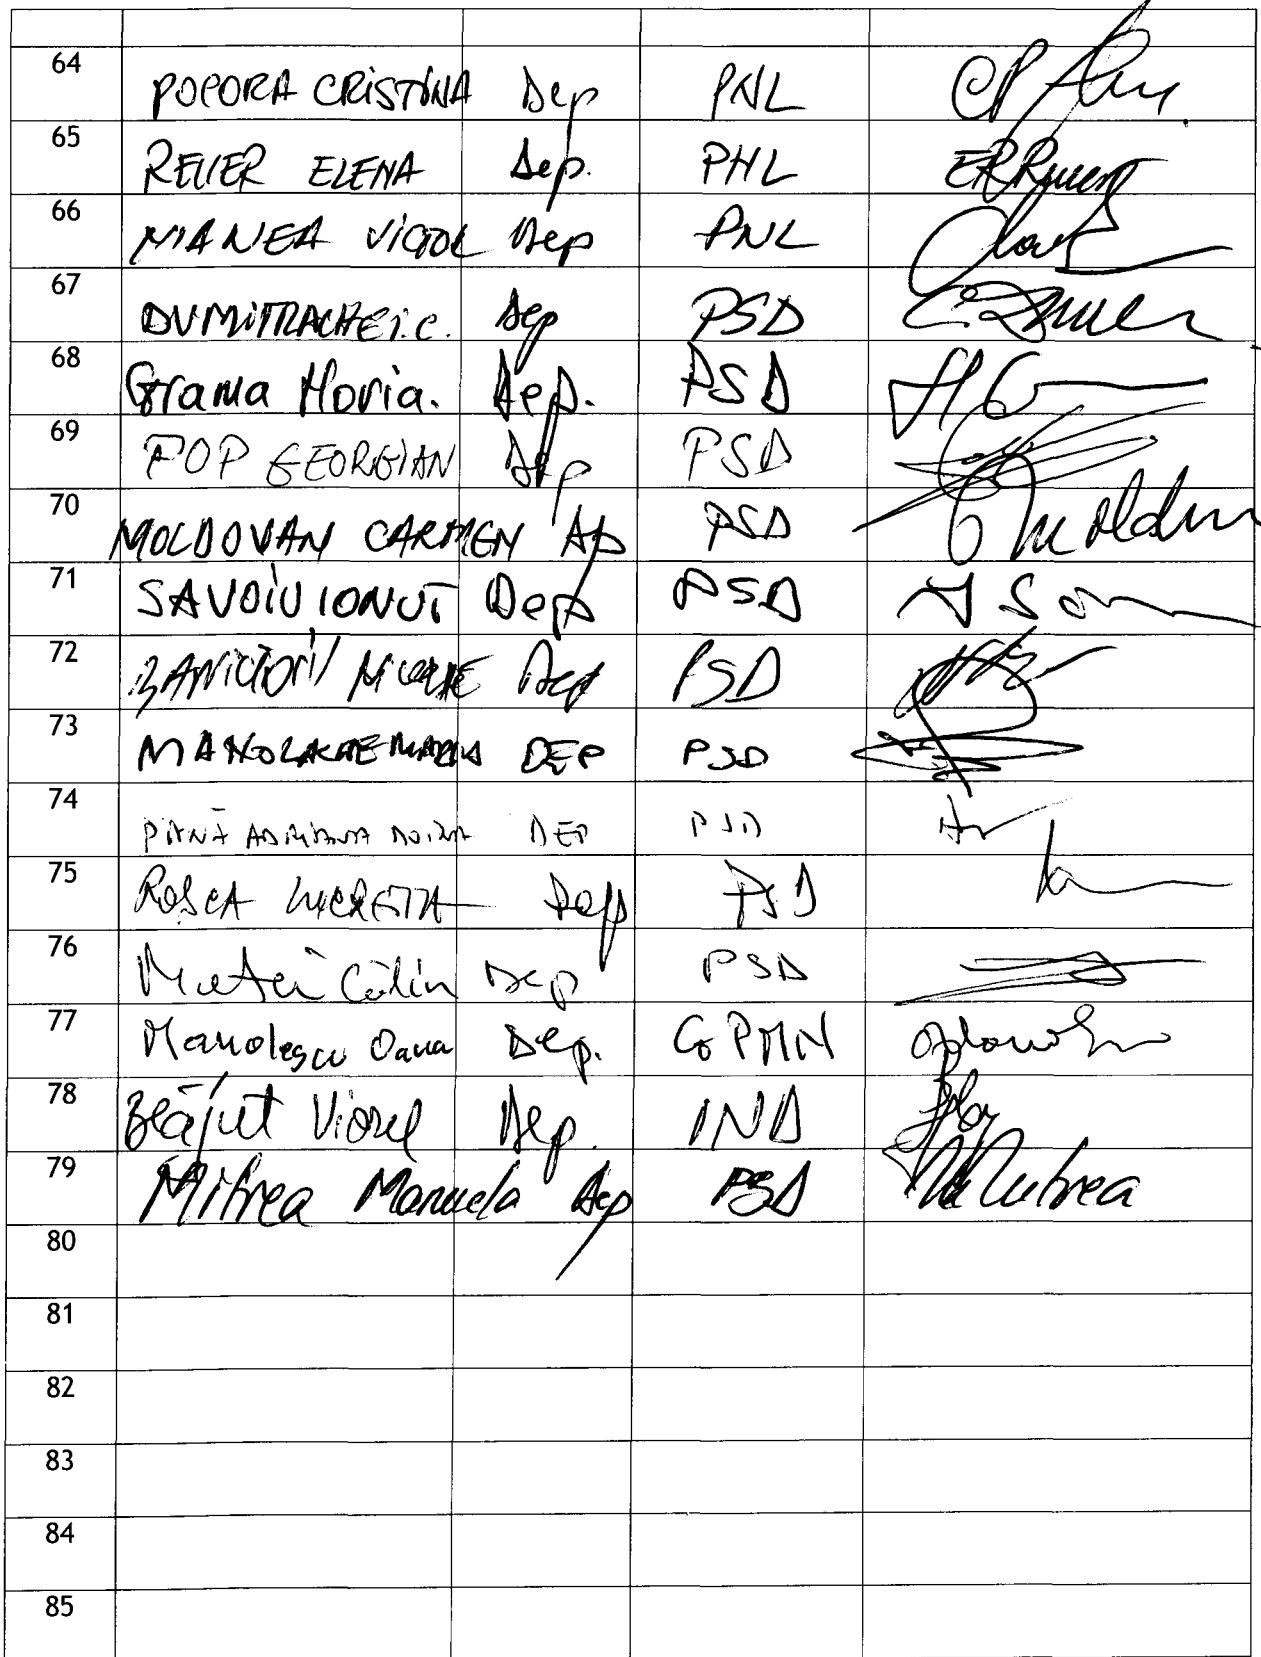 64 POPORA CRISTINA Dep PNL
65 REUER ELENA Dep. PNL
66 MANEA VICTOR Dep PNL
67 DUMITRACHE I.C. Dep PSD
68 Grama Horia. Dep. PSD
69 POP GEORGIAN Dep PSD
70 MOLDOVAN CARMEN Dep PSD
71 SAVOIU IONUT Dep PSD
72 Dep PSD
73 MANOLACHE MARIA DEP PSD
74 PANĂ ADRIANA DOINA DEP PSD
75 ROȘCA LUCREȚIA Dep PSD
76 Matei Călin Dep PSD
77 Manolescu Oana Dep. GPMN
78 Blăjut Viorel Dep. IND
79 Mitrea Manuela Dep PSD Mitrea
80
81
82
83
84
85